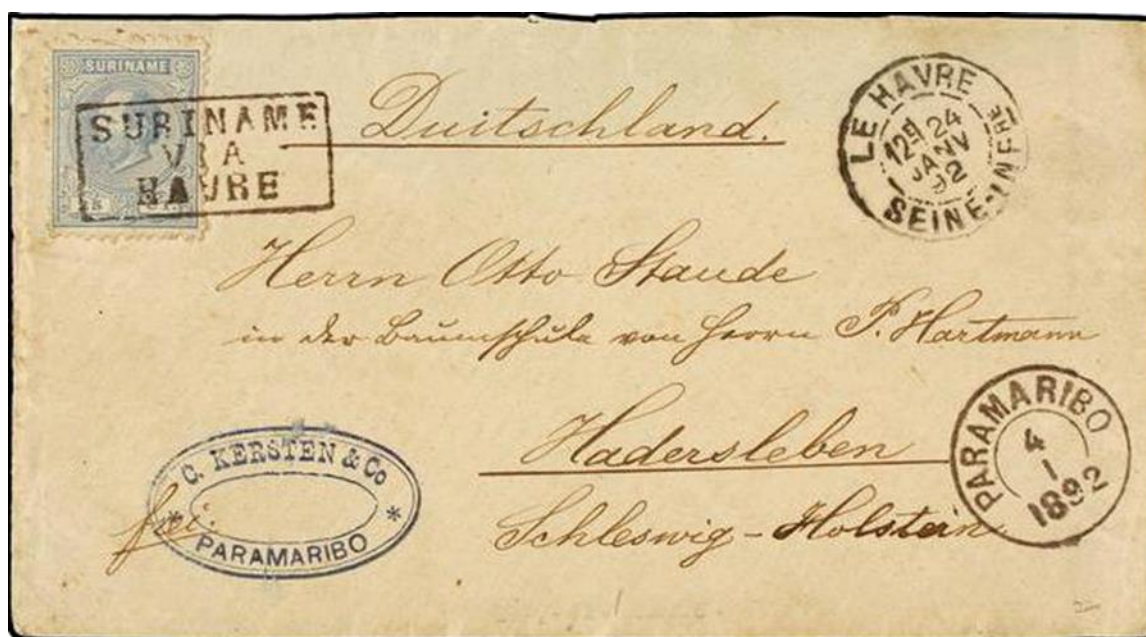 SURINAME
SURINAME
VIA
HAVRE
Duitschland.
LE HAVRE
12E 24
JANV
92
SEINE-INFRE
Herrn Otto Staude
in der Baumschule von Herrn P. Hartmann
Hadersleben
Schleswig-Holstein
PARAMARIBO
4
1
1892
C. KERSTEN & Co
frei.
* *
PARAMARIBO